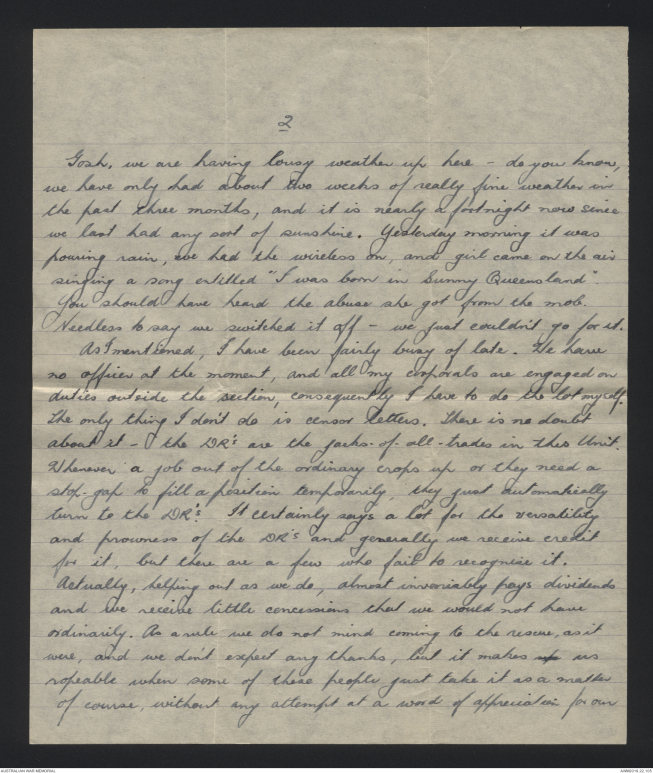 2
Gosh, we are having lousy weather up here - do you know,
we have only had about two weeks of really fine weather in
the past three months, and it is nearly a fortnight now since
we last had any sort of sunshine. Yesterday morning it was
pouring rain, we had the wireless on, and girl came on the air
singing a song entitled "I was born in Sunny Queensland".
You should have heard the abuse she got from the mob.
Needless to say we switched it off - we just couldn't go for it.
As I mentioned, I have been fairly busy of late. We have
no officer at the moment, and all my corporals are engaged on
duties outside the section, consequently I have to do the lot myself.
The only thing I don't do is censor letters. There is no doubt
about it - the DR's are the jacks-of-all-trades in this Unit.
Whenever a job out of the ordinary crops up or they need a
stop-gap to fill a position temporarily, they just automatically
turn to the DR's. It certainly says a lot for the versatility
and prowness of the DR's and generally we receive credit
for it, but there are a few who fail to recognise it.
Actually, helping out as we do, almost invariably pays dividends
and we receive little concessions that we would not have
ordinarily. As a rule we do not mind coming to the rescue, as it
were, and we don't expect any thanks, but it makes us
ropeable when some of these people just take it as a matter
of course, without any attempt at a word of appreciation for our
AUSTRALIAN WAR MEMORIAL